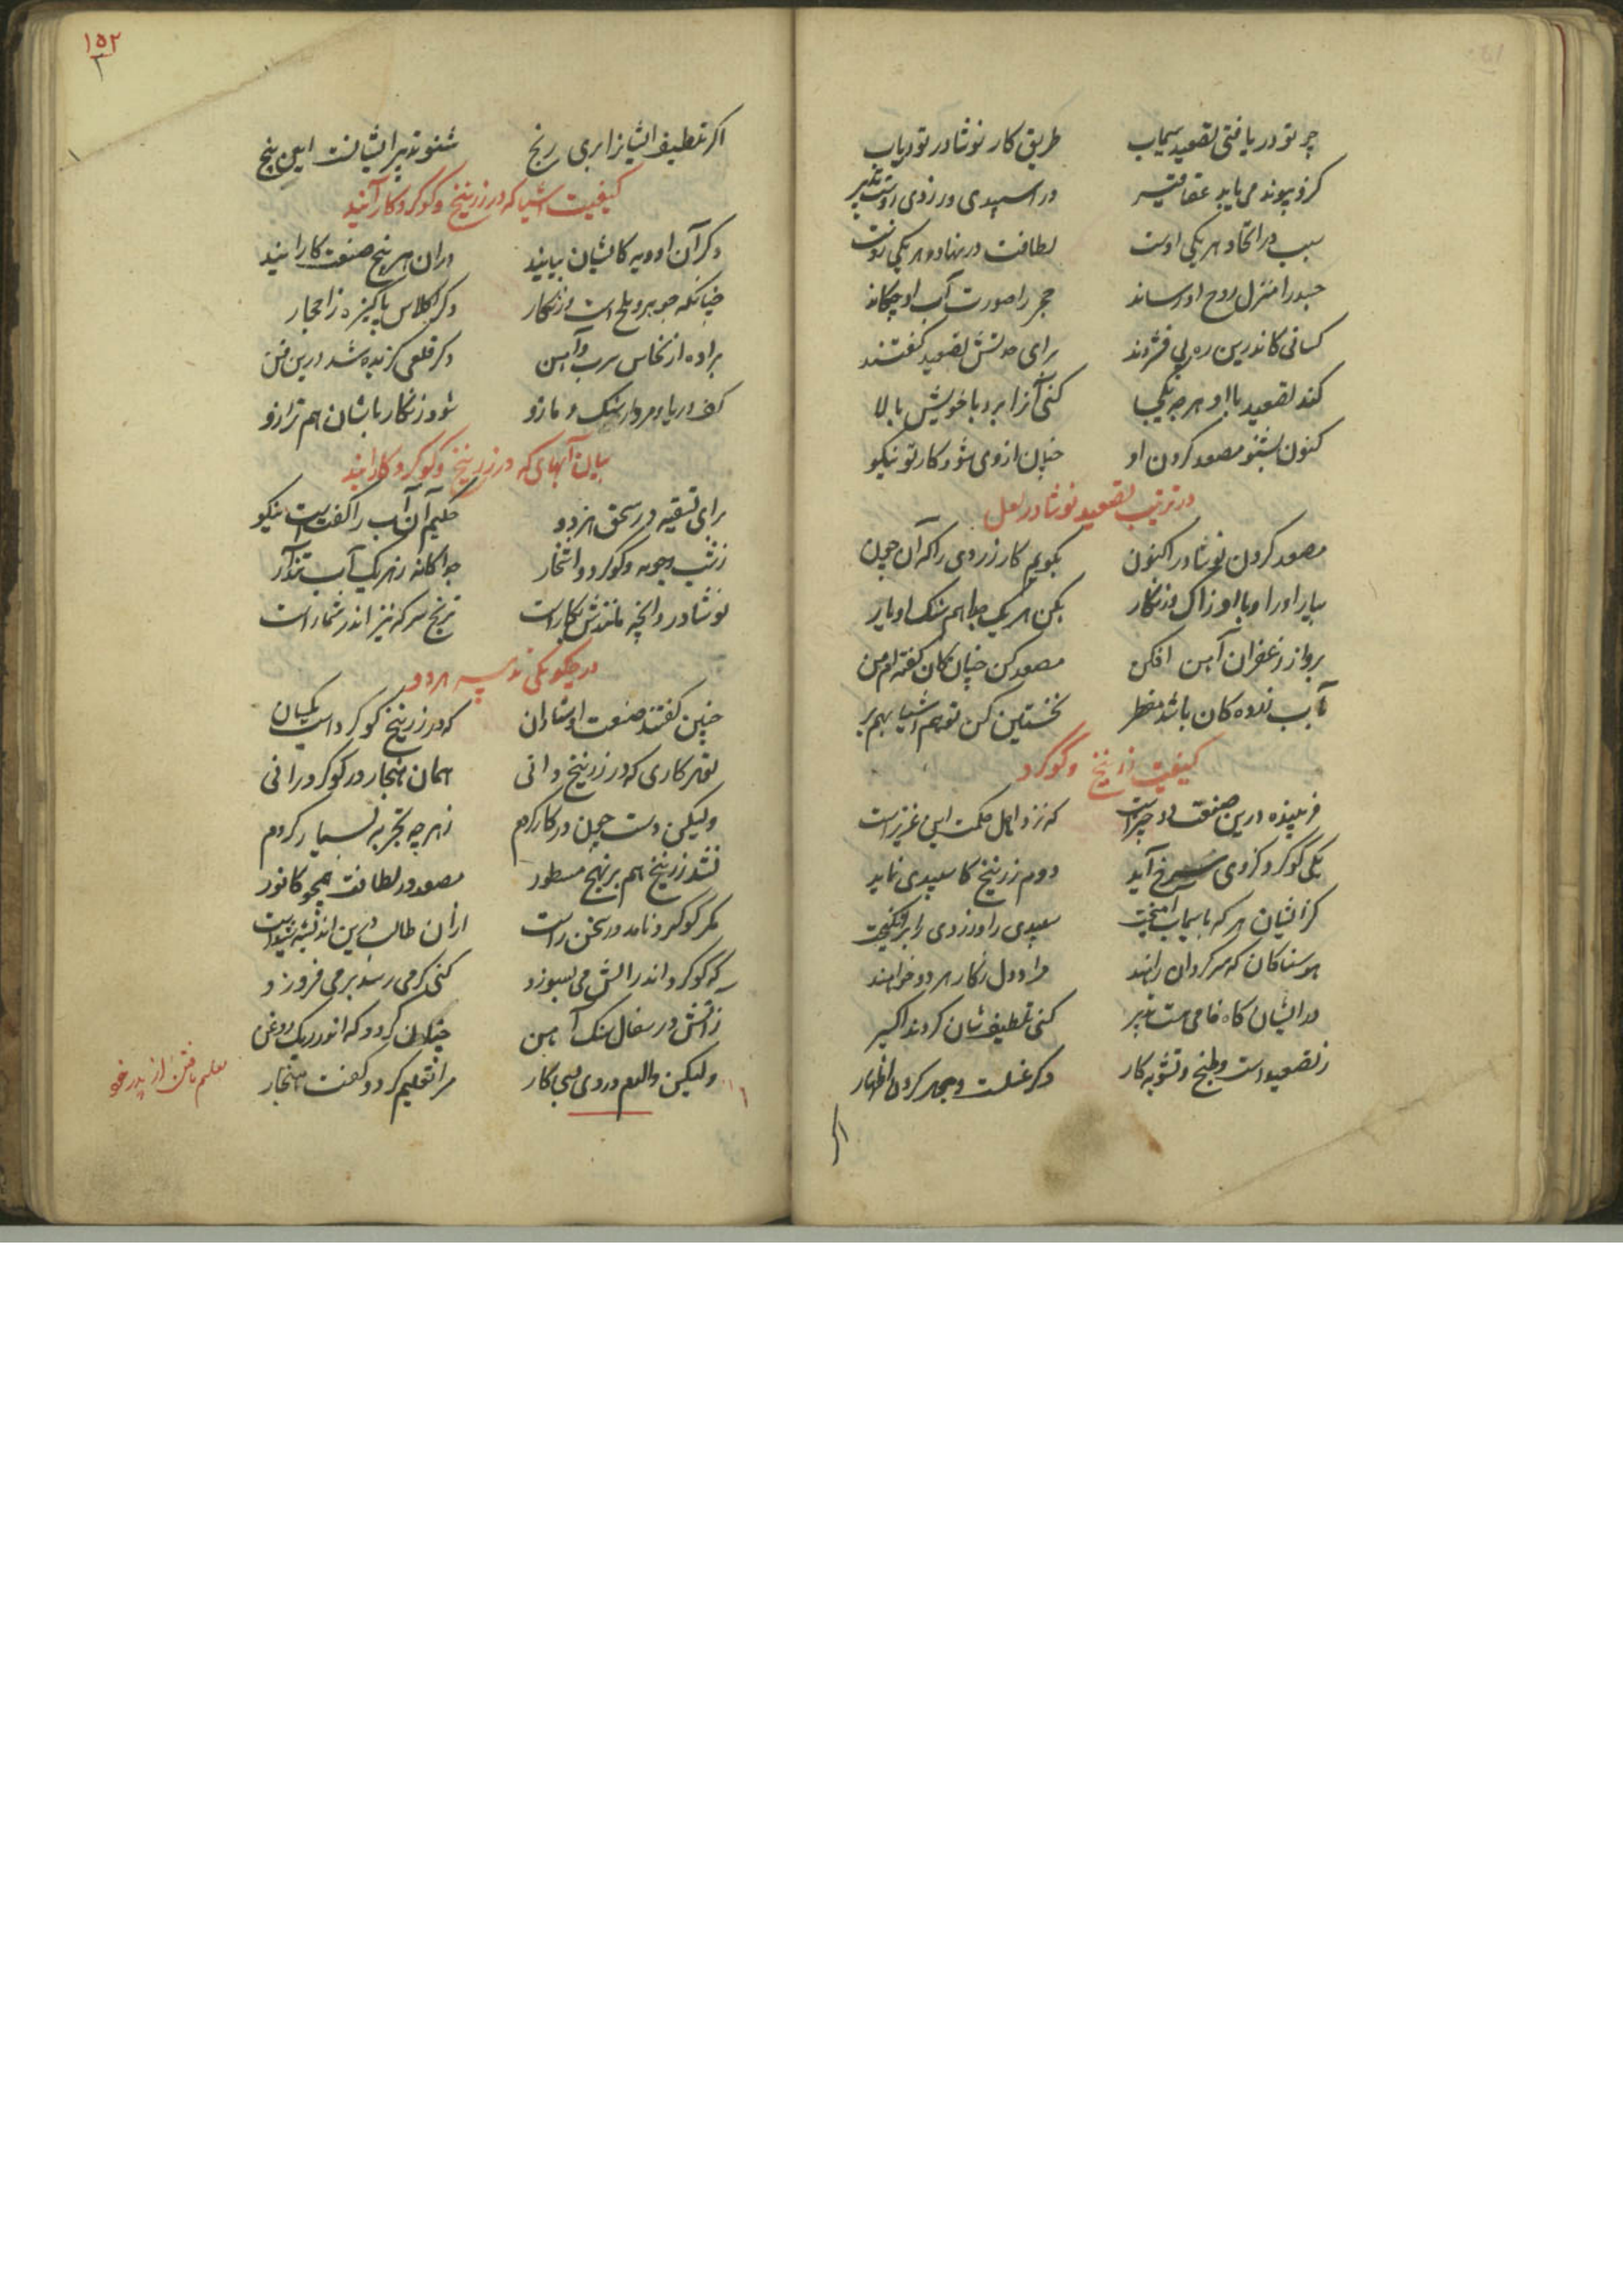 چو تو دریافتی تصعید سیماب طریق کار نوشادر تو دریاب
کزو پیوند می یابد عقاقیر در اسپیدی و زردی
سبب در اتحاد هر یکی اوست لطافت در نهاد هر یکی
جسد را منزل روح او رساند حجر را صورت آب او چکاند
کسانی کاندرین ره پی فشردند برای تصعید گفتند
کند تصعید با او هر چه یکجا کنی آنرا برد با خویش بالا
کنون بشنو مصعد کردن او چنان از وی شود کار تو نیکو
در ترتیب تصعید نوشادر لعل
مصعد کردن نوشادر اکنون بگویم کار زردی را که آن چون
بیار او را و با او زاک و زنگار بکن هر یک جدا هم سنک او یار
برو از زعفران آهن افکن مصعد کن چنان کان گفته ام من
نخستین کن تو هم اشیا بهم بر
کیفیت زرنیخ و گوگرد
درین صنعت دو چیز است که نزد اهل حکمت این عزیز است
یکی گوگرد کزوی سرخ آید دوم زرنیخ کاسپیدی نماید
کز ایشان هر که با سیماب آمیخت سپیدی را و زردی را برانگیخت
هوسناکان که سرگردان رانند مراد دل ز کار هر دو خوانند
در ایشان گاه خامی هست تدبیر کنی تلطیف شان گردند اکسیر
ز تصعید است و طبخ و تشویه کار دگر غسلست و کردن اظهار
اگر
۱۵۲
۲
اگر تلطیف ایشانرا بری رنج شنو تدبیر ایشانست این پنج
کیفیت اشیا که در زرنیخ و گوگرد کار آیند
دگر آن ادویه کایشان بیایند در آن هر پنج صنعت کار آیند
چنانکه جوهر و ملح است و زنگار دگر کلاس پاکیزه ز احجار
براده از نحاس سرب و آهن دگر قلعی گزیده شد درین فن
کف دریا و مردار سنک و مازو شود زنگار باشان هم ترازو
بیان آبهای که در زرنیخ و گوگرد کار آیند
برای تسقیه در سحق هر دو حکیم آن آب را گفت است نیکو
جداگانه ز هر یک آب بردار
نوشادر و آنچه مانندش بکار است ترنج سرکه نیز اندر شمار است
در چگونگی تدبیر هر دو
چنین گفتند صنعت اوستادان که در زرنیخ گوگرد است یکسان
بهر کاری که در زرنیخ دانی همان هنجار در گوگرد رانی
ولیکن دست چون در کار کردم ز هر چه تجربه بسیار کردم
نشد زرنیخ هم بر نهج مسطور مصعد در لطافت همچو کافور
مگر گوگرد نامد در سخن راست از آن طالب درین اندیشه
که گوگرد اندر آتش می بسوزد کنی گرمی رسد بر می فروزد
ز آتش در سفال سنک آهن چنان گردد که اندر ریک روغن
ولیکن والدم در وی پی کار مرا تعلیم کرد و گفت هنجار
تعلیم یافتن از پدر خود